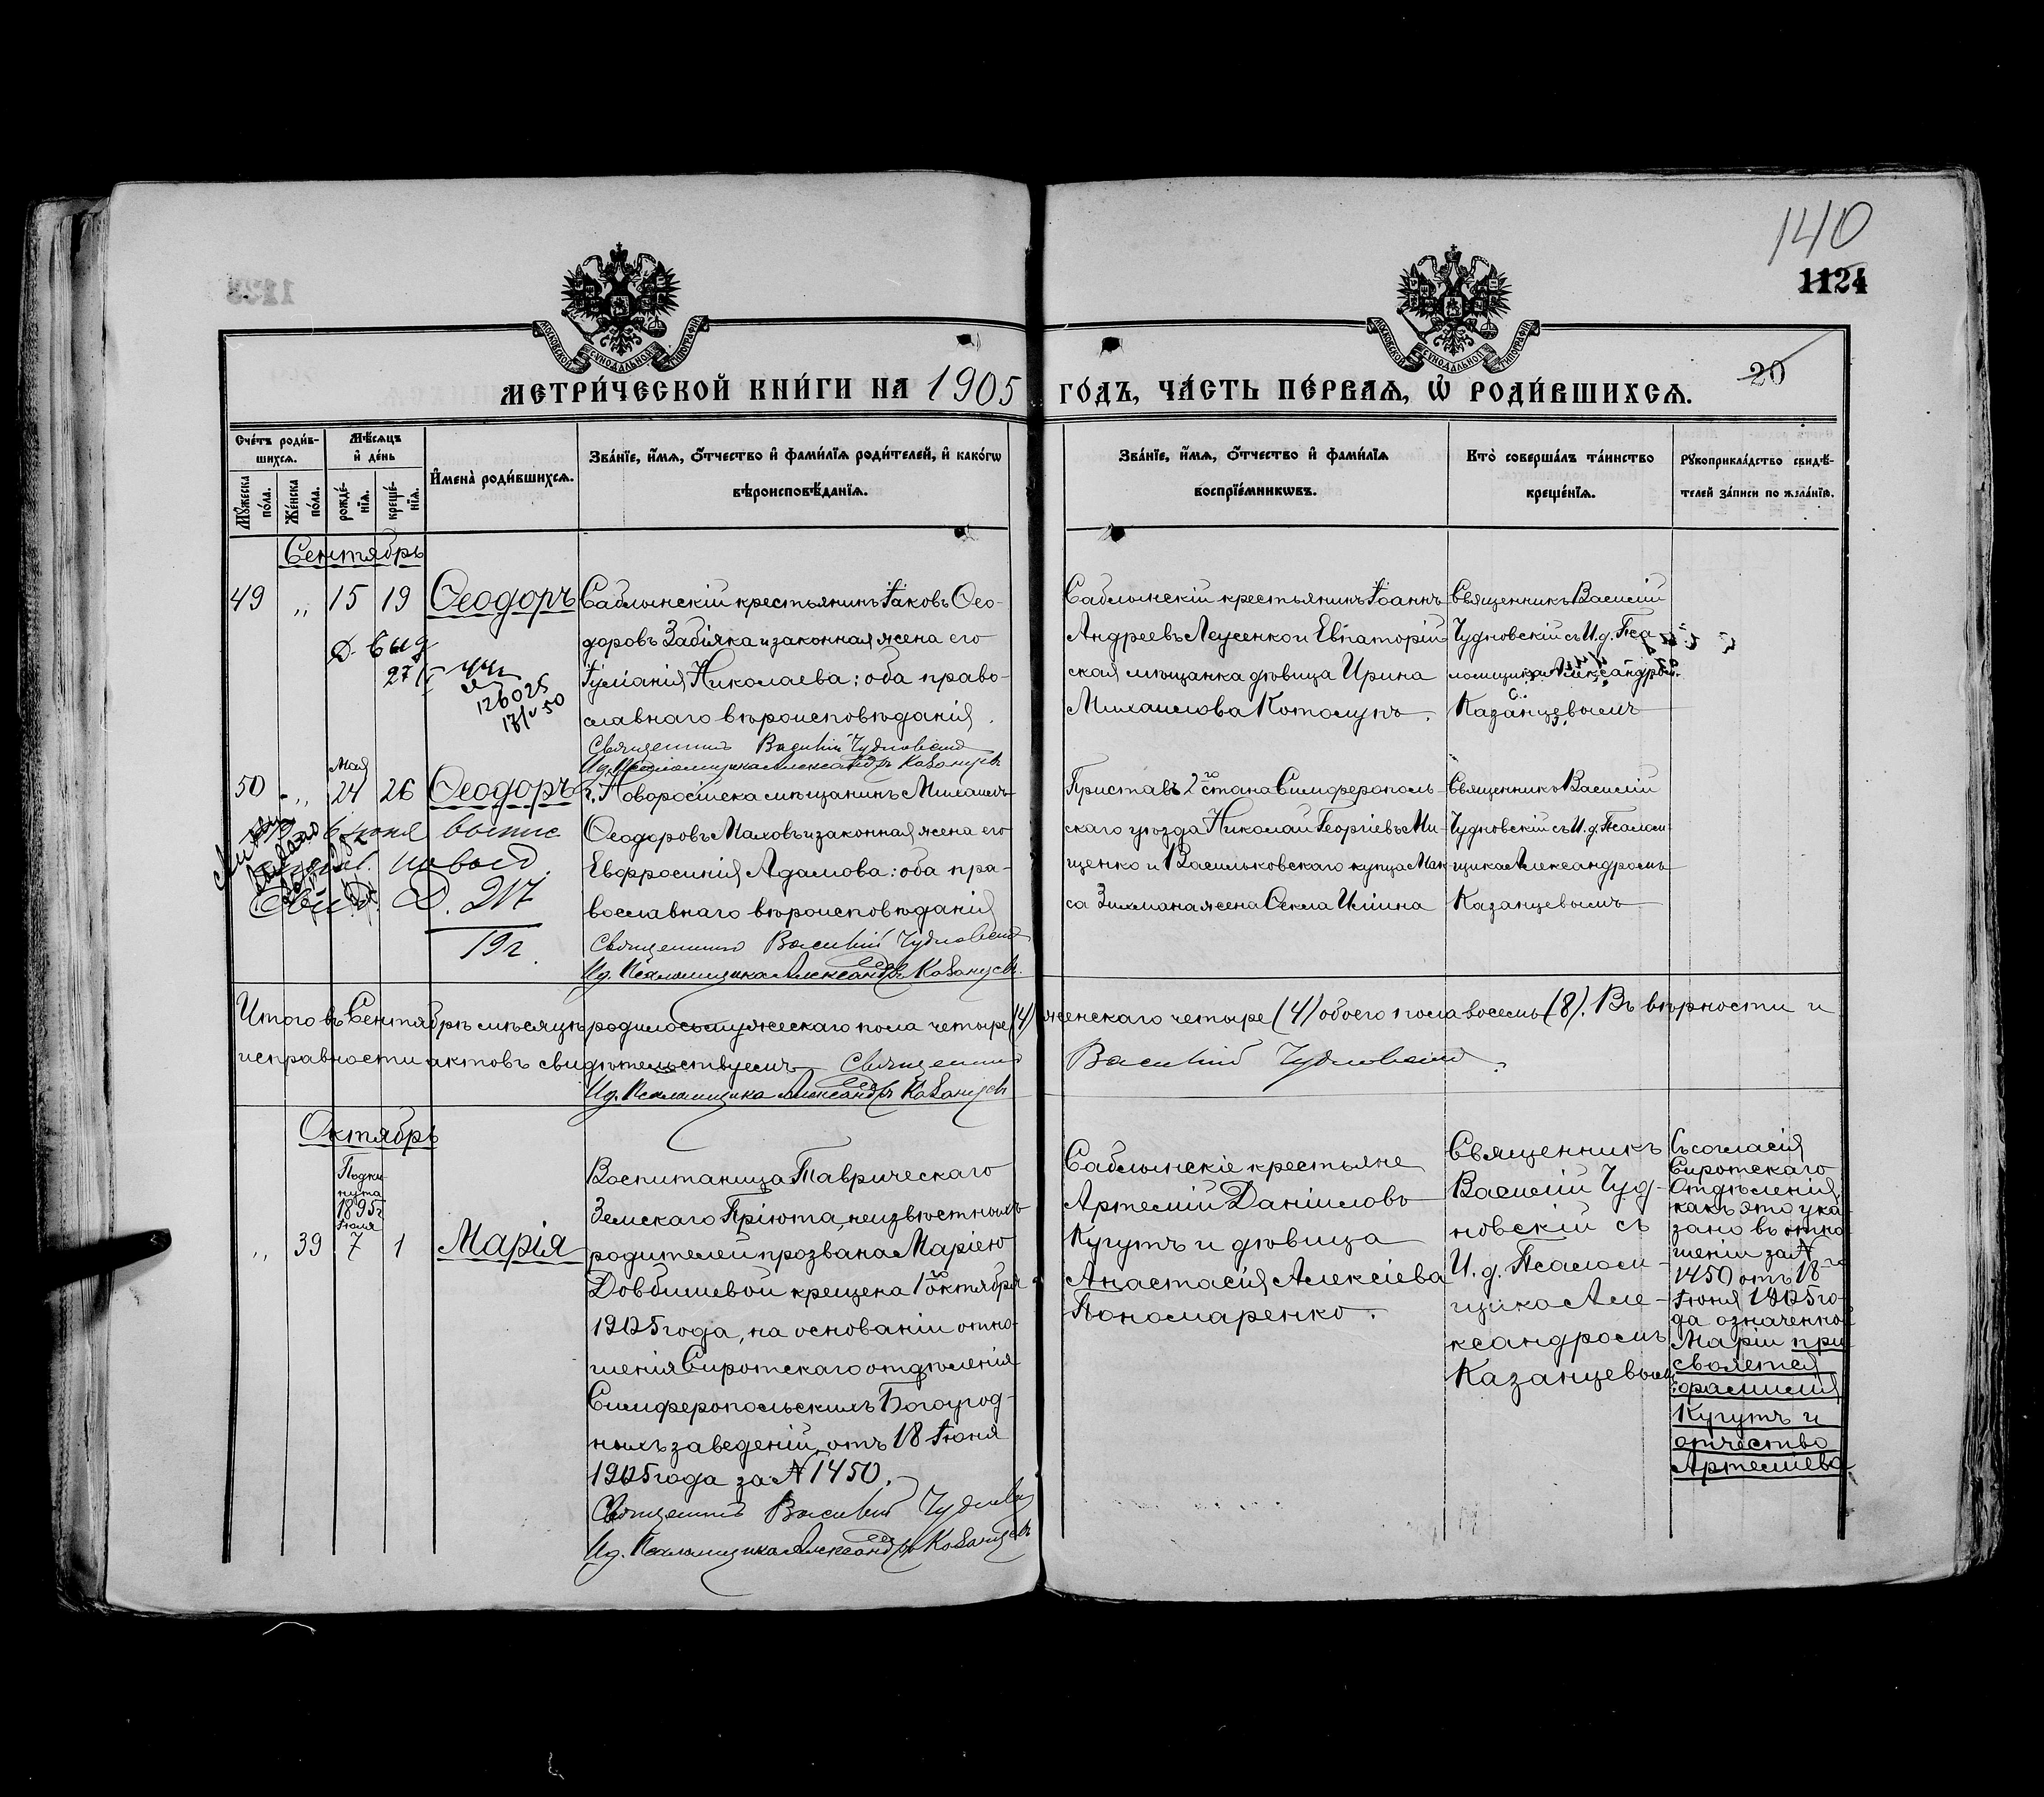 140
1124
МОСКОВСКОЙ СУНОДАЛЬНОЙ ТИПОГРАФІИ
МОСКОВСКОЙ СУНОДАЛЬНОЙ ТИПОГРАФІИ
20
МЕТРИ́ЧЕСКОЙ КНИ́ГИ НА 1905 ГО́ДЪ, ЧА́СТЬ ПЕ́РВАѦ, Ѽ РОДИ́ВШИХСѦ.
Сче́тъ роди́в-
шихсѧ.
Мꙋ́жеска по́ла.
Же́нска по́ла.
Мѣ́сѧцъ
и҆ де́нь
рожде́-
нїѧ.
креще́-
нїѧ.
И҆мена̀ роди́вшихсѧ.
Зва́нїе, и҆́мѧ, ѻ҆́тчество и҆ фами́лїѧ роди́телей, и҆ како́гѡ
вѣроисповѣ́данїѧ.
Зва́нїе, и҆́мѧ, ѻ҆́тчество и҆ фами́лїѧ
воспрїе́мникѡвъ.
Кто̀ соверша́лъ та́инство
креще́нїѧ.
Рꙋкоприкла́дство свидѣ́-
телей за́писи по жела́нїю.
Сентябрь
49 „ 15 19 Ѳеодоръ
Д. выд
27/
126025
17/V 50
Саблынскій крестьянинъ Іаковъ Ѳео-
доровъ Забіяка и законная жена его
Іуліанія Николаева: оба право-
славнаго вѣроисповѣданія.
Священникъ Василій Чудновскій
И.д. Псаломщика Александръ Казанцевъ
Саблынскій крестьянинъ Іоаннъ
Андреевъ Лѧусенко и Евпаторій-
ская мѣщанка дѣвица Ирина
Михаилова Котолупъ.
Священникъ Василій
Чудновскій съ И.д. Пса-
ломщика Александромъ
Казанцевымъ
Мая
50 „ 24 26 Ѳеодоръ
6 июня выпис
Д. 217
19 г.
г. Новоросійска мѣщанинъ Михаилъ
Ѳеодоровъ Маховъ и законная жена его
Евфросинія Адамова: оба пра-
вославнаго вѣроисповѣданія
Священникъ Василій Чудновскій
И.д. Псаломщика Александръ Казанцевъ.
Приставъ 2го стана Симферополь-
скаго уѣзда Николай Георгіевъ Ми-
щенко и Васильковскаго купца Мак-
са Зихмана жена Ѳекла Ильина
Священникъ Василій
Чудновскій съ И.д. Псалом-
щика Александромъ
Казанцевымъ
Итого въ Сентябрѣ мѣсяцѣ родилось мужескаго пола четыре (4) женскаго четыре (4) обоего пола восемь (8). Въ вѣрности и
исправности актовъ свидѣтельствуемъ Священникъ Василій Чудновскій.
И.д. Псаломщика Александръ Казанцевъ
Октябрь
Подки-
нута
1895 г
Іюля
„ 39 7 1 Марія
Воспитаница Таврическаго
Земскаго Пріюта, неизвѣстныхъ
родителей прозвана Маріею
Довбишевой крещена 1го октября
1905 года, на основаніи отно-
шенія Сиротскаго отдѣленія
Симферопольскихъ Богоугод-
ныхъ заведеній, отъ 18 Іюня
1905 года за № 1450.
Священникъ Василій Чудновскій
И.д. Псаломщика Александръ Казанцевъ
Саблынскіе крестьяне
Артемій Даніиловъ
Кугутъ и дѣвица
Анастасія Алексіева
Пономаренко.
Священникъ
Василій Чуд-
новскій съ
И.д. Псалом-
щика Але-
ксандромъ
Казанцевымъ
Съ согласія
Сиротскаго
Отдѣленія
какъ это ука-
зано въ отно-
шеніи за №
1450 отъ 18го
Іюня 1905 го-
да означенной
Маріи при-
своляется
фамилія
Кугутъ и
отчество
Артеміева.